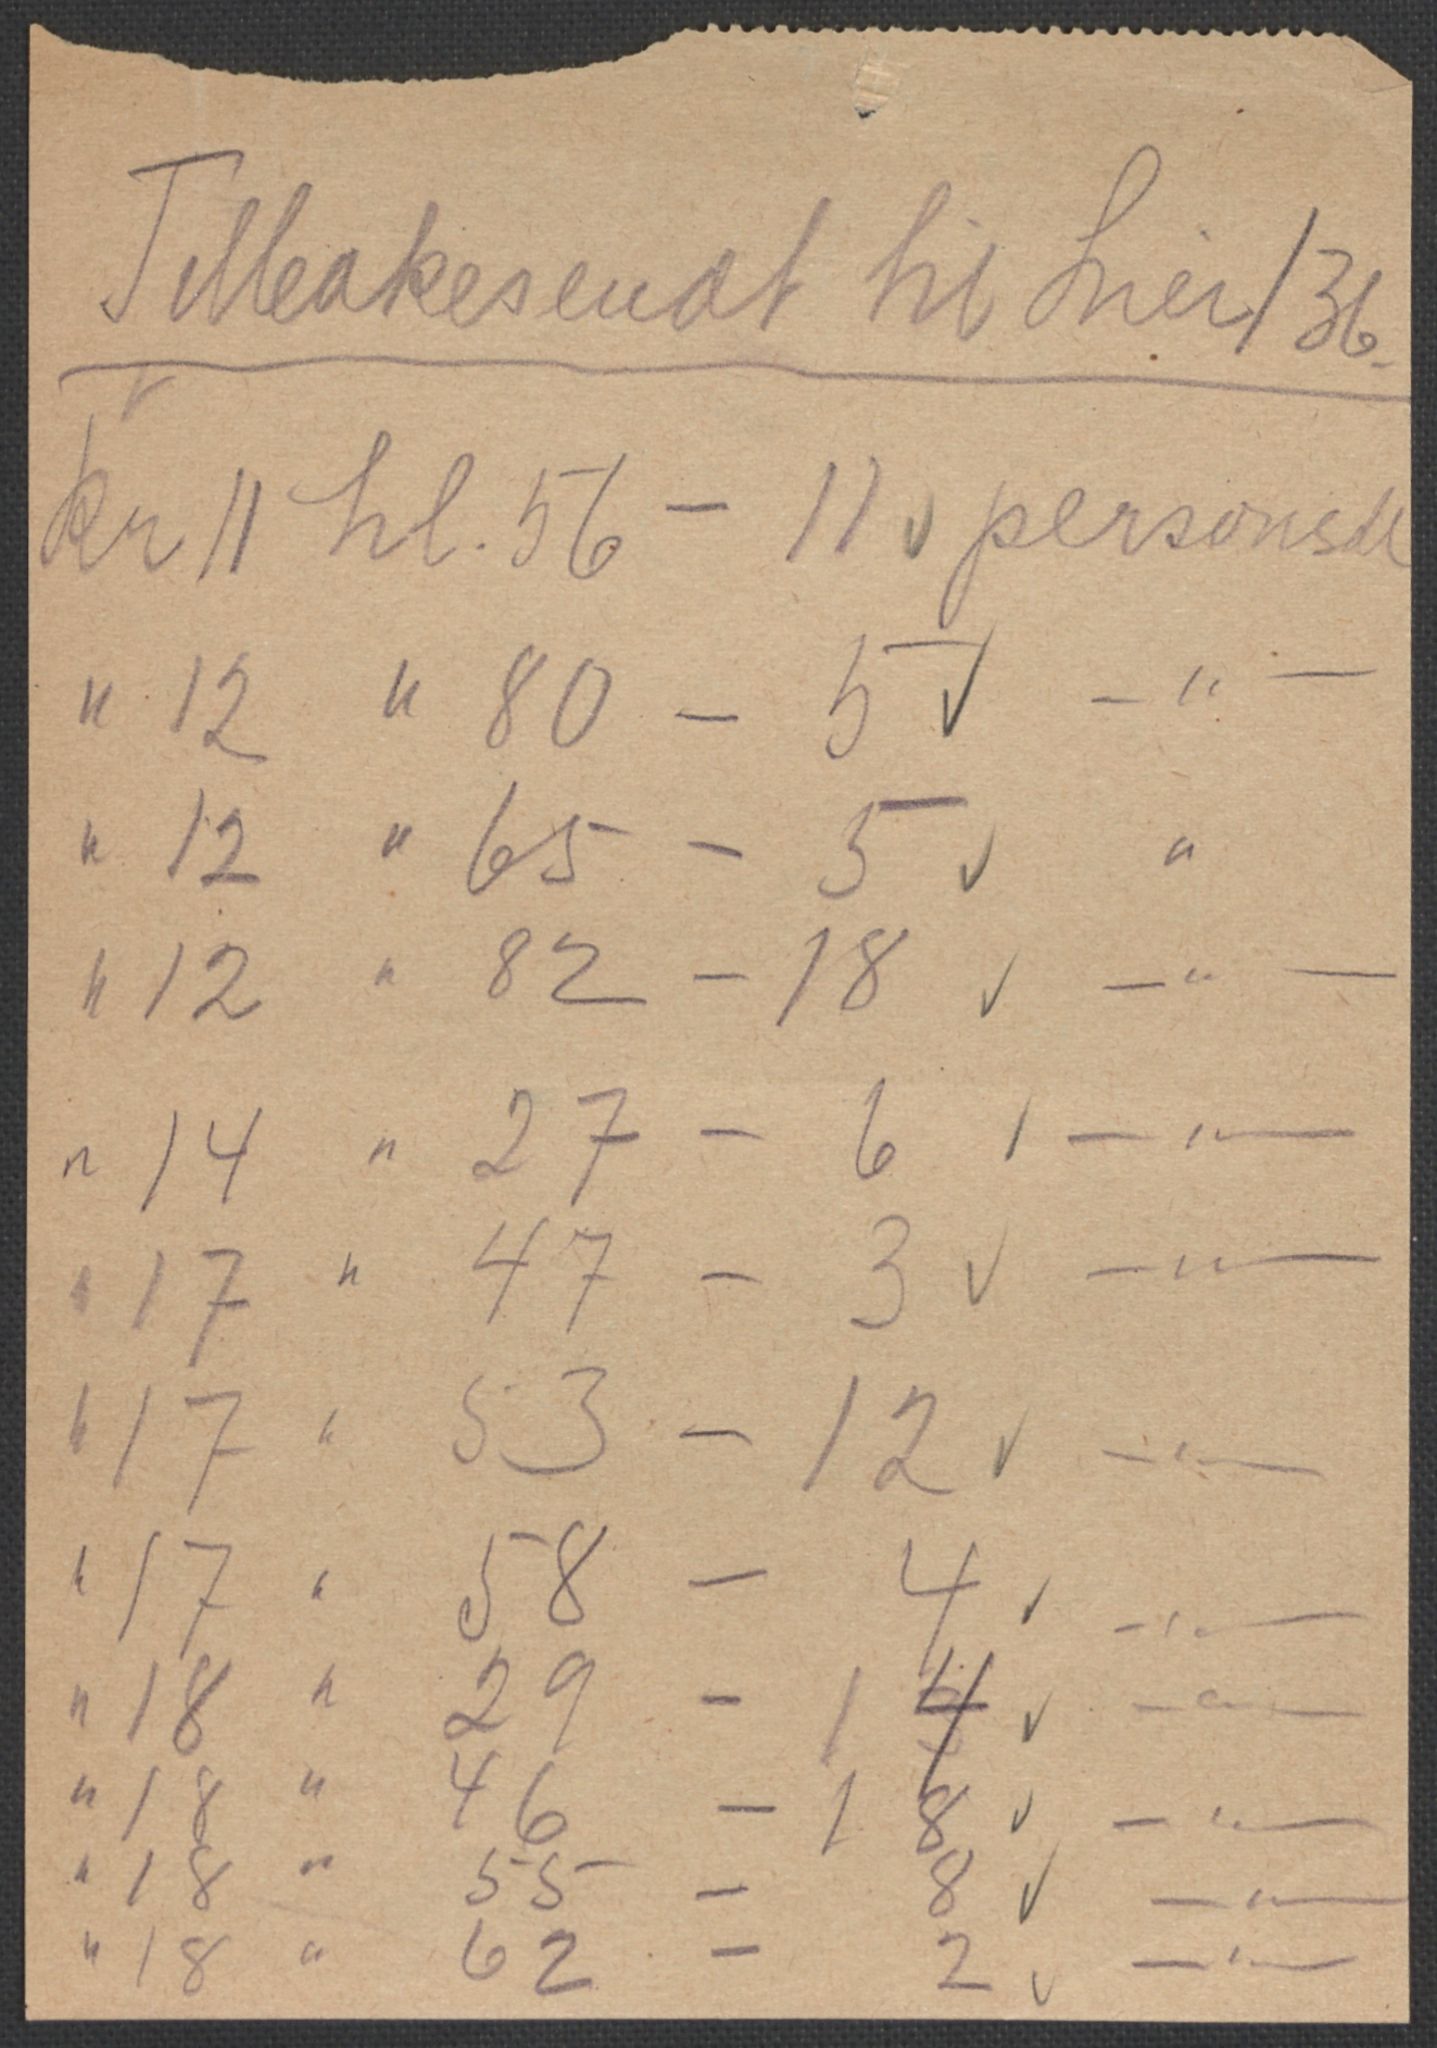 Tilbakesendt til Lier / 36.
kr 11 hl. 56 – 11 ✓ personsdl
" 12 " 80 – 5 ✓ – " –
" 12 " 65 – 5 ✓ "
" 12 " 82 – 18 ✓ – " –
" 14 " 27 – 6 ✓ – " –
" 17 " 47 – 3 ✓ – " –
" 17 " 53 – 12 ✓ – " –
" 17 " 58 – 4 ✓ – " –
" 18 " 29 – 14 ✓ – " –
" 18 " 46 – 18 ✓ – " –
" 18 " 55 – 8 ✓ – " –
" 18 " 62 – 2 ✓ – " –